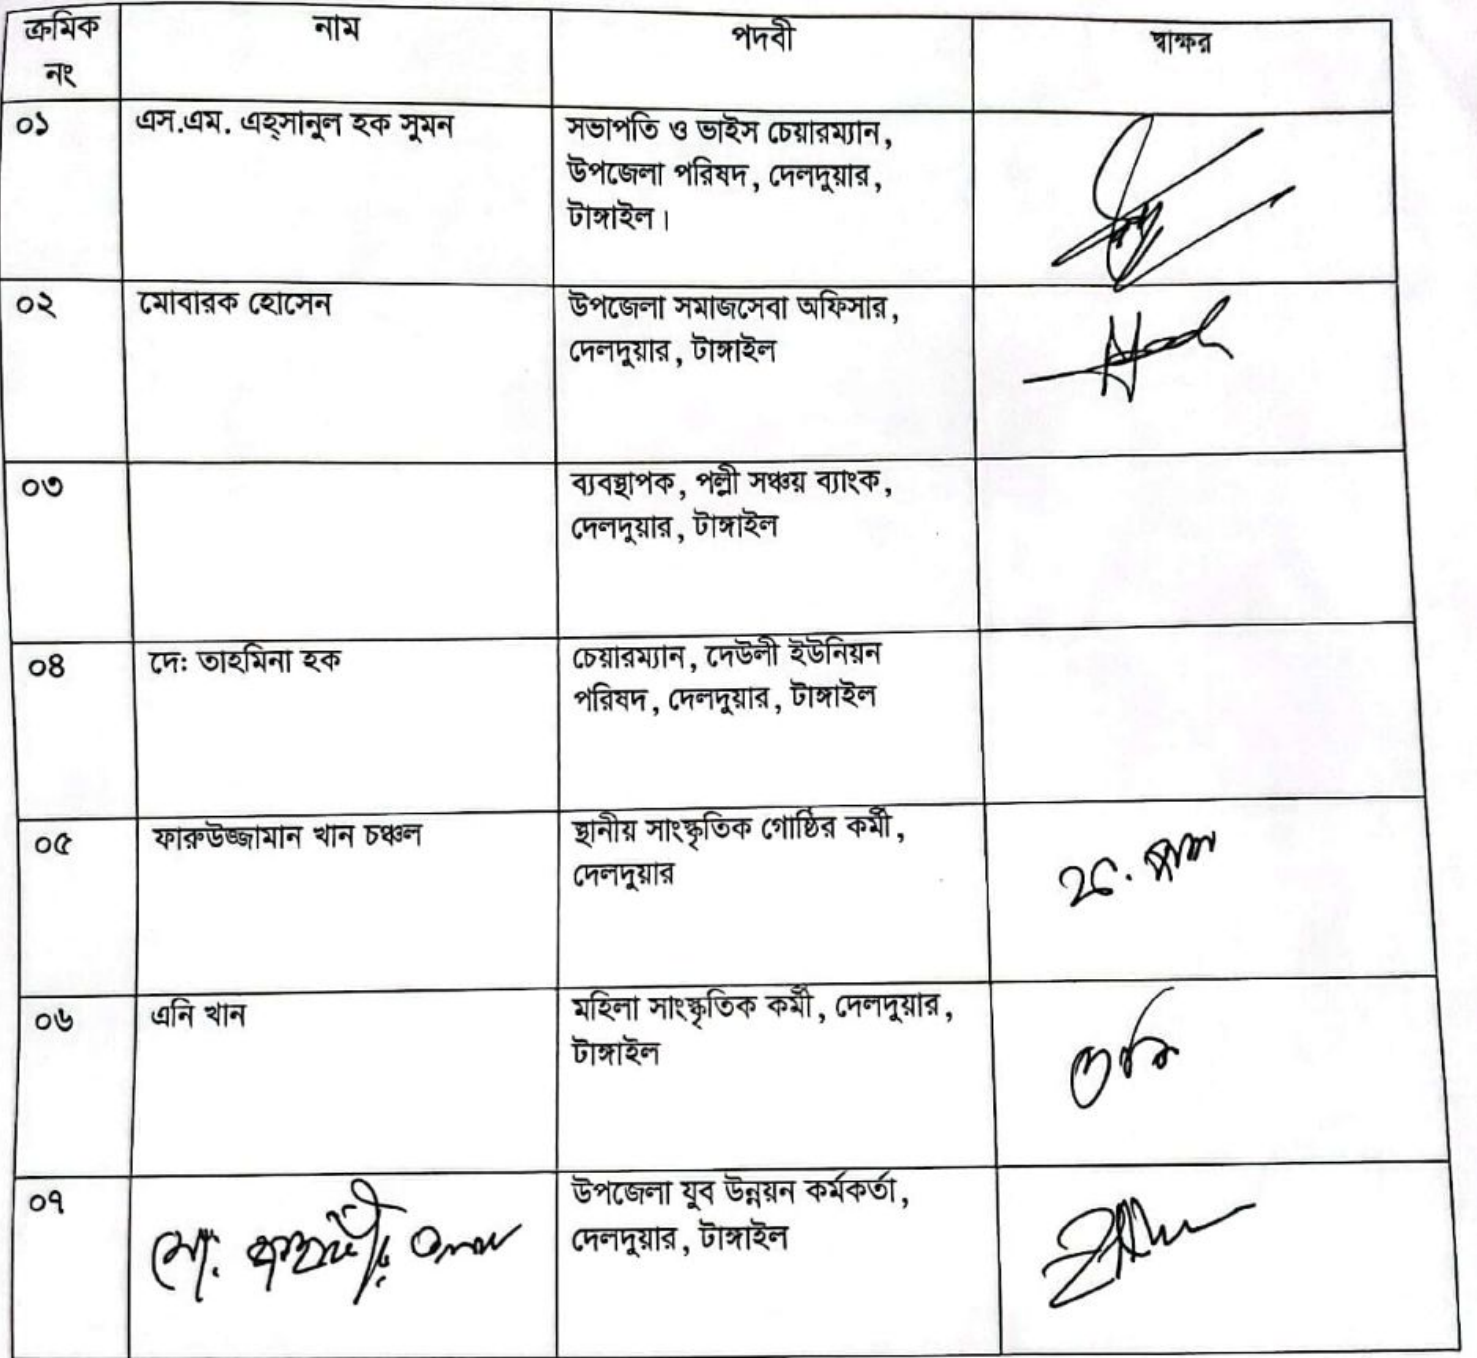 ক্রমিক নাম পদবী স্বাক্ষর
নং
০১ এস.এম. এহ্সানুল হক সুমন সভাপতি ও ভাইস চেয়ারম্যান,
উপজেলা পরিষদ, দেলদুয়ার,
টাঙ্গাইল।
০২ মোবারক হোসেন উপজেলা সমাজসেবা অফিসার,
দেলদুয়ার, টাঙ্গাইল
০৩ ব্যবস্থাপক, পল্লী সঞ্চয় ব্যাংক,
দেলদুয়ার, টাঙ্গাইল
০৪ দে: তাহমিনা হক চেয়ারম্যান, দেউলী ইউনিয়ন
পরিষদ, দেলদুয়ার, টাঙ্গাইল
০৫ ফারুউজ্জামান খান চঞ্চল স্থানীয় সাংস্কৃতিক গোষ্ঠির কর্মী,
দেলদুয়ার
০৬ এনি খান মহিলা সাংস্কৃতিক কর্মী, দেলদুয়ার,
টাঙ্গাইল
০৭ মো: উপজেলা যুব উন্নয়ন কর্মকর্তা,
দেলদুয়ার, টাঙ্গাইল